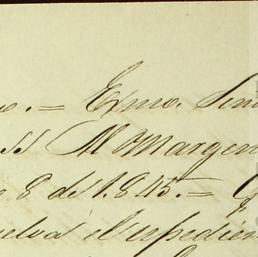 o. = Exmo. Señ
ss Al Margen
e 8 de 1.845. =
uelva el espedien